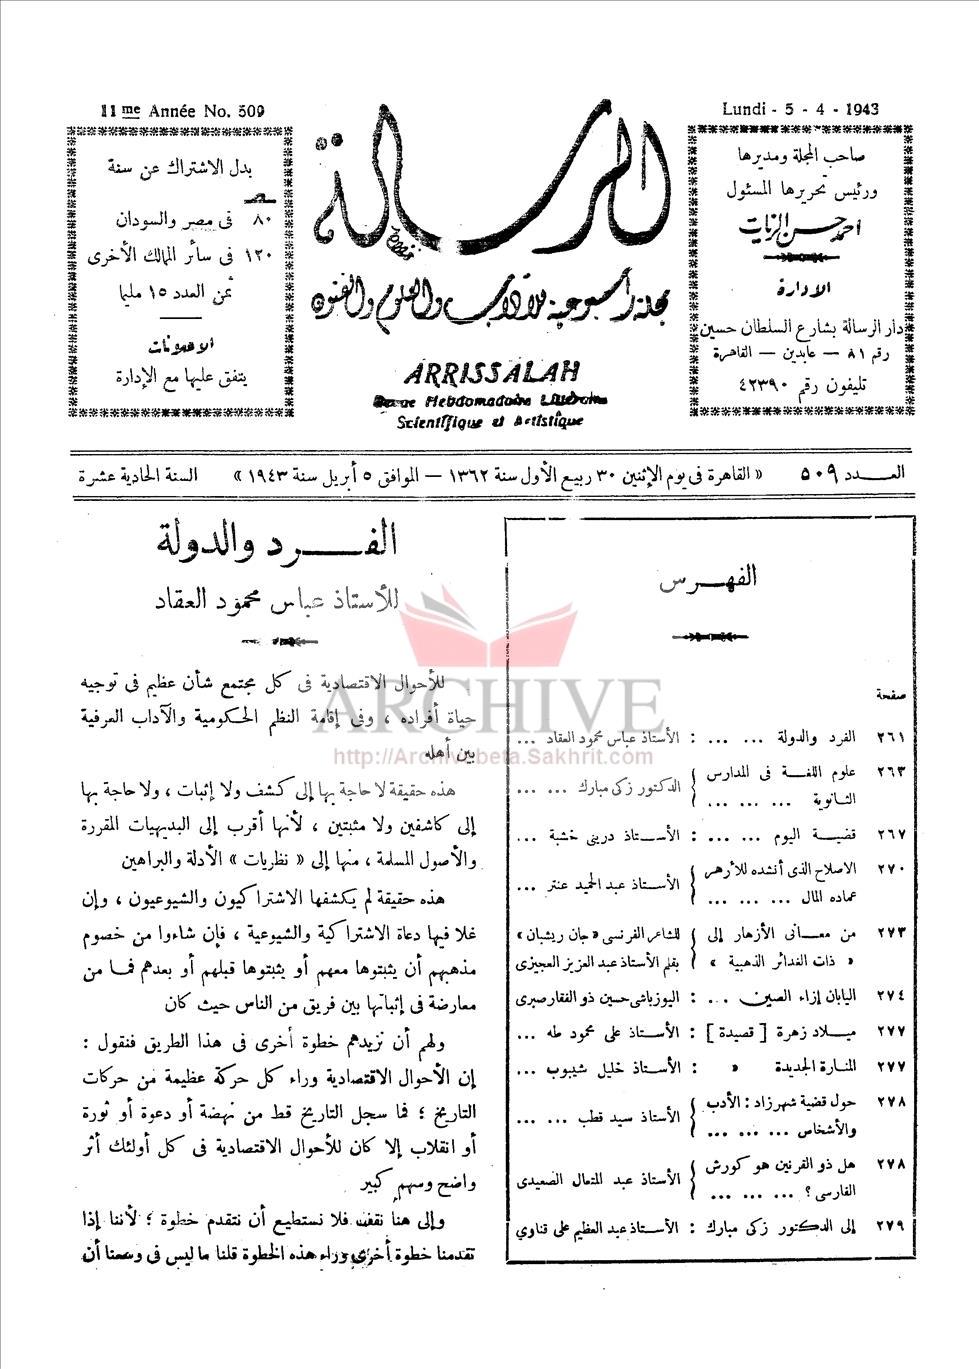 11me Année No. 509
Lundi - 5 - 4 - 1943
صاحب المجلة ومديرها
ورئيس تحريرها المسئول
احمد حسن الزيات
الادارة
دار الرسالة بشارع السلطان حسين
رقم ٨١ — عابدين — القاهرة
تليفون رقم ٤٢٣٩٠
الرسالة
مجلة أسبوعية للآداب والعلوم والفنون
ARRISSALAH
Revue Hebdomadaire Littéraire
Scientifique et Artistique
بدل الاشتراك عن سنة
٨٠ فى مصر والسودان
١٢٠ فى سائر الممالك الأخرى
ثمن العدد ١٥ مليما
الاعلانات
يتفق عليها مع الإدارة
العـــدد ٥٠٩ « القاهرة فى يوم الإثنين ٣٠ ربيع الأول سنة ١٣٦٢ — الموافق ٥ أبريل سنة ١٩٤٣ » السنة الحادية عشرة
الفهرس
صفحة
٢٦١ الفرد والدولة ... ... : الأستاذ عباس محمود العقاد ...
٢٦٣ علوم اللغة فى المدارس
الثانوية ... ... ... } الدكتور زكى مبارك ... ...
٢٦٧ قضية اليوم ... ... : الأستاذ درينى خشبة ...
٢٧٠ الاصلاح الذى أنشده للأزهر
عماده المال ... ... ... } الأستاذ عبد الحميد عنتر ...
٢٧٣ من معانى الأزهار إلى } للشاعر الفرنسى « جان ريشبان »
« ذات الغدائر الذهبية » بقلم الأستاذ عبد العزيز العجيزى
٢٧٤ اليابان إزاء الصين ... : اليوزباشى حسين ذو الفقار صبرى
٢٧٧ ميلاد زهرة [ قصيدة ] : الأستاذ على محمود طه ...
٢٧٧ المنارة الجديدة » : الأستاذ خليل شيبوب ...
٢٧٨ حول قضية شهرزاد : الأدب
والأشخاص ... ... ... } الأستاذ سيد قطب ... ...
٢٧٨ هل ذو القرنين هو كورش
الفارسى ؟ ... ... ... } الأستاذ عبد المتعال الصعيدى
٢٧٩ إلى الدكتور زكى مبارك : الأستاذ عبد العظيم على قناوي
الفـــرد والدولة
للأستاذ عباس محمود العقاد
للأحوال الاقتصادية فى كل مجتمع شأن عظيم فى توجيه
حياة أفراده ، وفي إقامة النظم الحكومية والآداب العرفية
بين أهله
هذه حقيقة لا حاجة بها إلى كشف ولا إثبات ، ولا حاجة بها
إلى كاشفين ولا مثبتين ، لأنها أقرب إلى البديهيات المقررة
والأصول المسلمة ، منها إلى « نظريات » الأدلة والبراهين
هذه حقيقة لم يكشفها الاشتراكيون والشيوعيون ، وإن
غلا فيها دعاة الاشتراكية والشيوعية ، فإن شاءوا من خصوم
مذهبهم أن يثبتوها معهم أو يثبتوها قبلهم أو بعدهم فما من
معارضة فى إثباتها بين فريق من الناس حيث كان
ولهم أن نزيدهم خطوة أخرى فى هذا الطريق فنقول :
إن الأحوال الاقتصادية وراء كل حركة عظيمة من حركات
التاريخ ؛ فما سجل التاريخ قط من نهضة أو دعوة أو ثورة
أو انقلاب إلا كان للأحوال الاقتصادية فى كل أولئك أثر
واضح وسهم كبير
وإلى هنا نقف فلا نستطيع أن نتقدم خطوة ؛ لأننا إذا
تقدمنا خطوة أخرى وراء هذه الخطوة قلنا ما ليس فى وسعنا أن
ARCHIVE
http://Archivebeta.Sakhrit.com